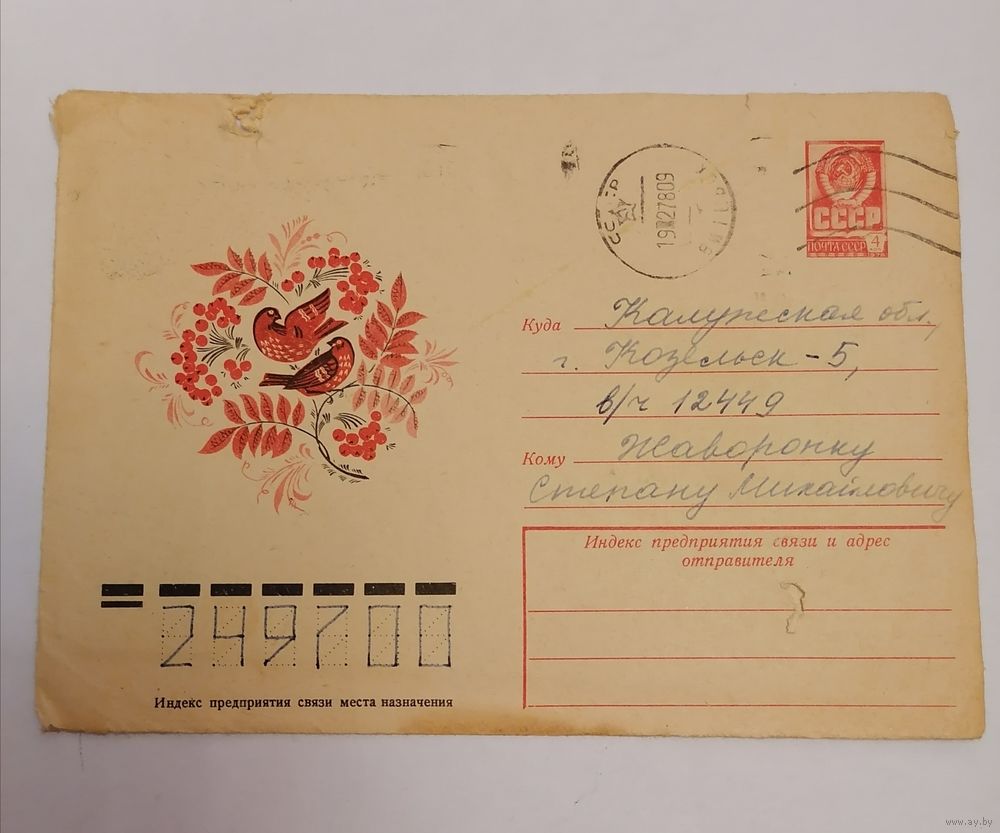 СССР
1927809
СССР
ПОЧТА СССР 4
Куда Калужская обл,
г. Козельск - 5,
в/ч 12449
Кому Жаворонку
Степану Михайловичу
Индекс предприятия связи и адрес
отправителя
249700
Индекс предприятия связи места назначения
www.ay.by